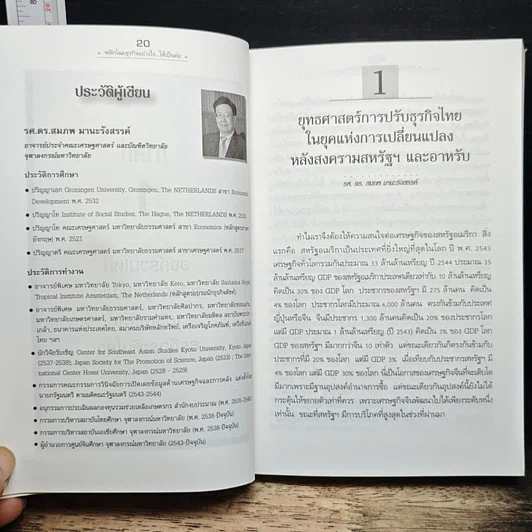 20
พลิกโฉมธุรกิจอย่างไร...ให้เป็นต่อ
ประวัติผู้เขียน
รศ.ดร.สมภพ มานะรังสรรค์
อาจารย์ประจำคณะเศรษฐศาสตร์ และบัณฑิตวิทยาลัย
จุฬาลงกรณ์มหาวิทยาลัย
ประวัติการศึกษา
• ปริญญาเอก Groningen University, Groningen, The NETHERLANDS สาขา Economic
Development พ.ศ. 2532
• ปริญญาโท Institute of Social Studies, The Hague, The NETHERLANDS พ.ศ.
• ปริญญาโท คณะเศรษฐศาสตร์ มหาวิทยาลัยธรรมศาสตร์ สาขา Economics (หลักสูตรภาษา
อังกฤษ) พ.ศ. 2521
• ปริญญาตรี คณะเศรษฐศาสตร์ มหาวิทยาลัยธรรมศาสตร์ สาขาเศรษฐศาสตร์ พ.ศ.
ประวัติการทำงาน
• อาจารย์พิเศษ มหาวิทยาลัย Tokyo, มหาวิทยาลัย Keio, มหาวิทยาลัย Saitama
Tropical Institute Amsterdam, The Netherlands
• อาจารย์พิเศษ มหาวิทยาลัยธรรมศาสตร์, มหาวิทยาลัยศิลปากร,
มหาวิทยาลัยเกษตรศาสตร์, มหาวิทยาลัยรามคำแหง, มหาวิทยาลัยมหิดล
ธนาคารแห่งประเทศไทย, สมาคมบริษัทหลักทรัพย์, เครือเจริญโภคภัณฑ์
ไทย ฯลฯ
• นักวิจัยรับเชิญ Center for Southeast Asian Studies Kyoto University, Kyoto Japan
(2537-2538); Japan Society for The Promotion of Science, Japan ; The Inter-
national Center Hosei University, Japan (2528 - 2529)
• กรรมการคณะกรรมการวินิจฉัยการเปิดเผยข้อมูลด้านเศรษฐกิจและการคลัง
นายกรัฐมนตรี ตามมติคณะรัฐมนตรี (2543-2544)
• อนุกรรมการประเมินผลกองทุนรวมช่วยเหลือเกษตรกร สำนักงบประมาณ
• กรรมการบริหารสถาบันไทยศึกษา จุฬาลงกรณ์มหาวิทยาลัย (พ.ศ. 2535-ปัจจุบัน)
• กรรมการบริหารสถาบันเอเชียศึกษา จุฬาลงกรณ์มหาวิทยาลัย (พ.ศ. 2538-ปัจจุบัน)
• ผู้อำนวยการศูนย์จีนศึกษา จุฬาลงกรณ์มหาวิทยาลัย (2543-ปัจจุบัน)
1
ยุทธศาสตร์การปรับธุรกิจไทย
ในยุคแห่งการเปลี่ยนแปลง
หลังสงครามสหรัฐฯ และอาหรับ
รศ. ดร. สมภพ มานะรังสรรค์
ทำไมเราจึงต้องให้ความสนใจต่อเศรษฐกิจของสหรัฐอเมริกา สิ่ง
แรกคือ สหรัฐอเมริกาเป็นประเทศที่ยิ่งใหญ่ที่สุดในโลก ปี พ.ศ. 2543
เศรษฐกิจทั่วโลกรวมกันประมาณ 33 ล้านล้านเหรียญ ปี 2544 ประมาณ 35
ล้านล้านเหรียญ GDP ของสหรัฐอเมริกาประเทศเดียวเท่ากับ 10 ล้านล้านเหรียญ
คิดเป็น 30% ของ GDP โลก ประชากรของสหรัฐฯ มี 275 ล้านคน คิดเป็น
4% ของโลก ประชากรโลกมีประมาณ 6,000 ล้านคน ตรงกันข้ามกับประเทศ
ญี่ปุ่นหรือจีน จีนมีประชากร 1,300 ล้านคนคิดเป็น 20% ของประชากรโลก
แต่มี GDP ประมาณ 1 ล้านล้านเหรียญ (ปี 2543) คิดเป็น 3% ของ GDP โลก
GDP ของสหรัฐฯ มีมากกว่าจีน 10 เท่าตัว แต่ขณะเดียวกันก็ตรงกันข้ามกับ
ประชากรที่มี 20% ของโลก แต่มี GDP 3% เมื่อเทียบกับประชากรสหรัฐฯ มี
4% แต่มี GDP ของโลก 30% นี่เป็นโอกาสของเศรษฐกิจจีนที่จะเติบโต
มีมากเพราะมีฐานอุปสงค์อำนาจการซื้อ แต่ขณะเดียวกันอุปสงค์นี้ยังไม่ได้
กระตุ้นให้ขยายตัวเท่าที่ควร เพราะเศรษฐกิจจีนพัฒนาไปได้เพียงระดับหนึ่ง
เท่านั้น ขณะที่สหรัฐฯ มีการบริโภคที่สูงสุดในช่วงที่ผ่านมา